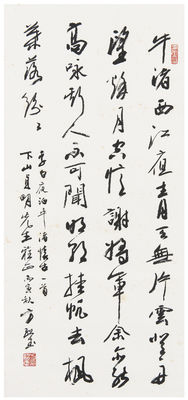 牛渚西江夜青天無片雲登舟
望秋月空憶謝將軍余亦能
高詠斯人不可聞明朝挂帆去楓
葉落紛々
李白夜泊牛渚懷古一首
下山明先生雅正丙寅秋